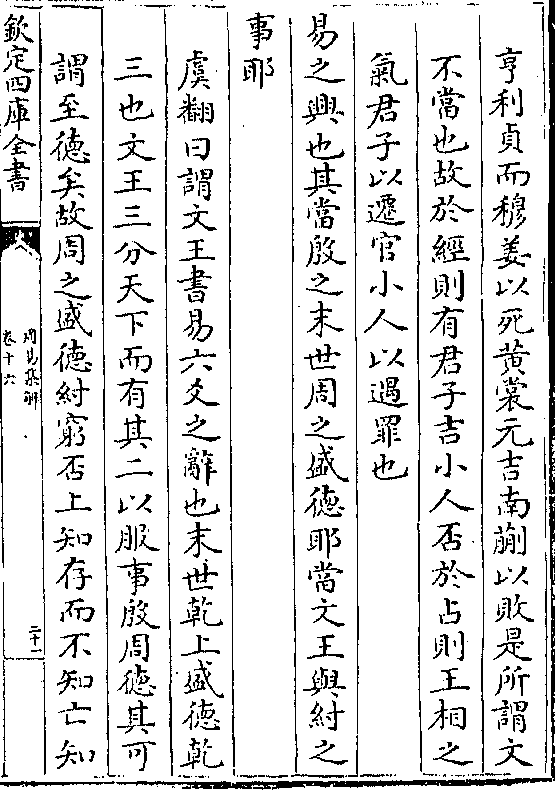 亨利貞而穆姜以死黄裳元吉南蒯以敗是所謂文
不當也故於經則有君子吉小人否於占則王相之
氣君子以遷官小人以遇罪也
易之興也其當殷之末世周之盛德耶當文王與紂之
事耶
虞翻曰謂文王書易六爻之辭也末世乾上盛德乾
三也文王三分天下而有其二以服事殷周德其可
謂至德矣故周之盛德紂窮否上知存而不知亡知
欽定四庫全書
周易集解
卷十六
二十一